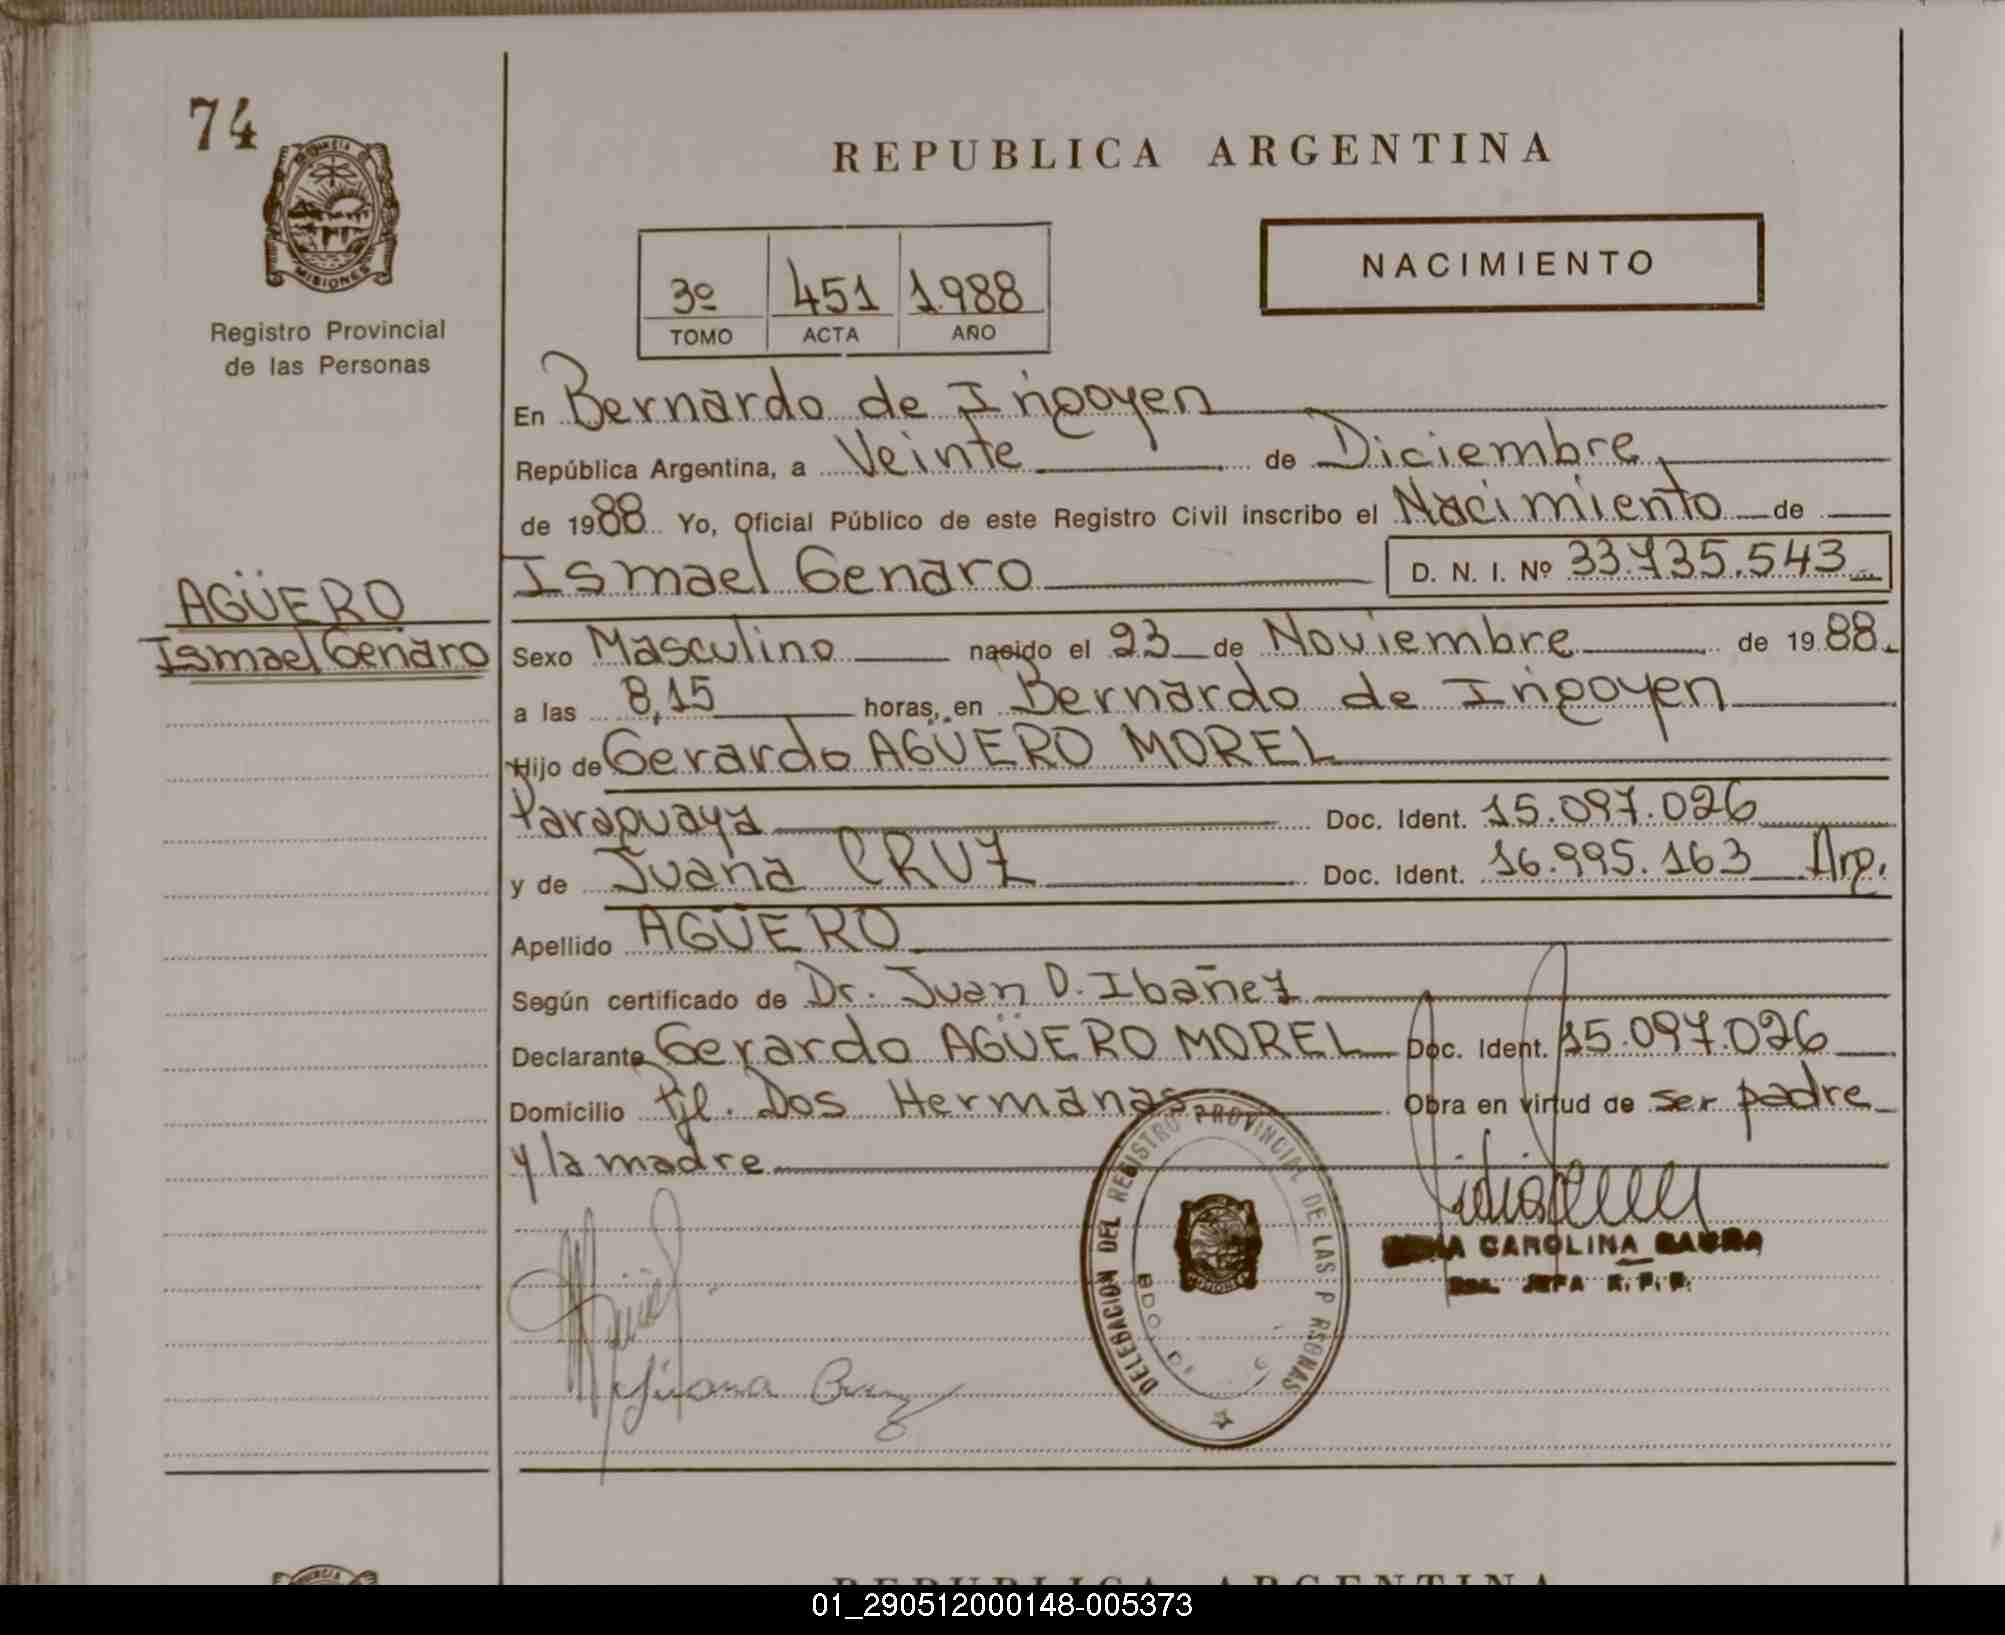 74
PROVINCIA
MISIONES
Registro Provincial
de las Personas
AGÜERO
Ismael Genaro
REPUBLICA ARGENTINA
NACIMIENTO
3º 451 1988
TOMO ACTA AÑO
En Bernardo de Irigoyen
República Argentina, a Veinte de Diciembre
de 1988 Yo, Oficial Público de este Registro Civil inscribo el Nacimiento de
Ismael Genaro D. N. I. Nº 33.735.543
Sexo Masculino nacido el 23 de Noviembre de 1988.
a las 8,15 horas, en Bernardo de Irigoyen
Hijo de Gerardo AGÜERO MOREL
Paraguaya Doc. Ident. 15.097.026
y de Juana CRUZ Doc. Ident. 16.995.163 Arg.
Apellido AGÜERO
Según certificado de Dr. Juan D. Ibañez
Declarante Gerardo AGÜERO MOREL Doc. Ident. 15.097.026
Domicilio Pje. Dos Hermanas Obra en virtud de ser padre
y la madre
DELEGACION DEL REGISTRO PROVINCIAL DE LAS P RSONAS
BDO. DE
MISIONES
CAROLINA
JEFA R. P. P.
Juana Cruz
REPUBLICA ARGENTINA
01_290512000148-005373